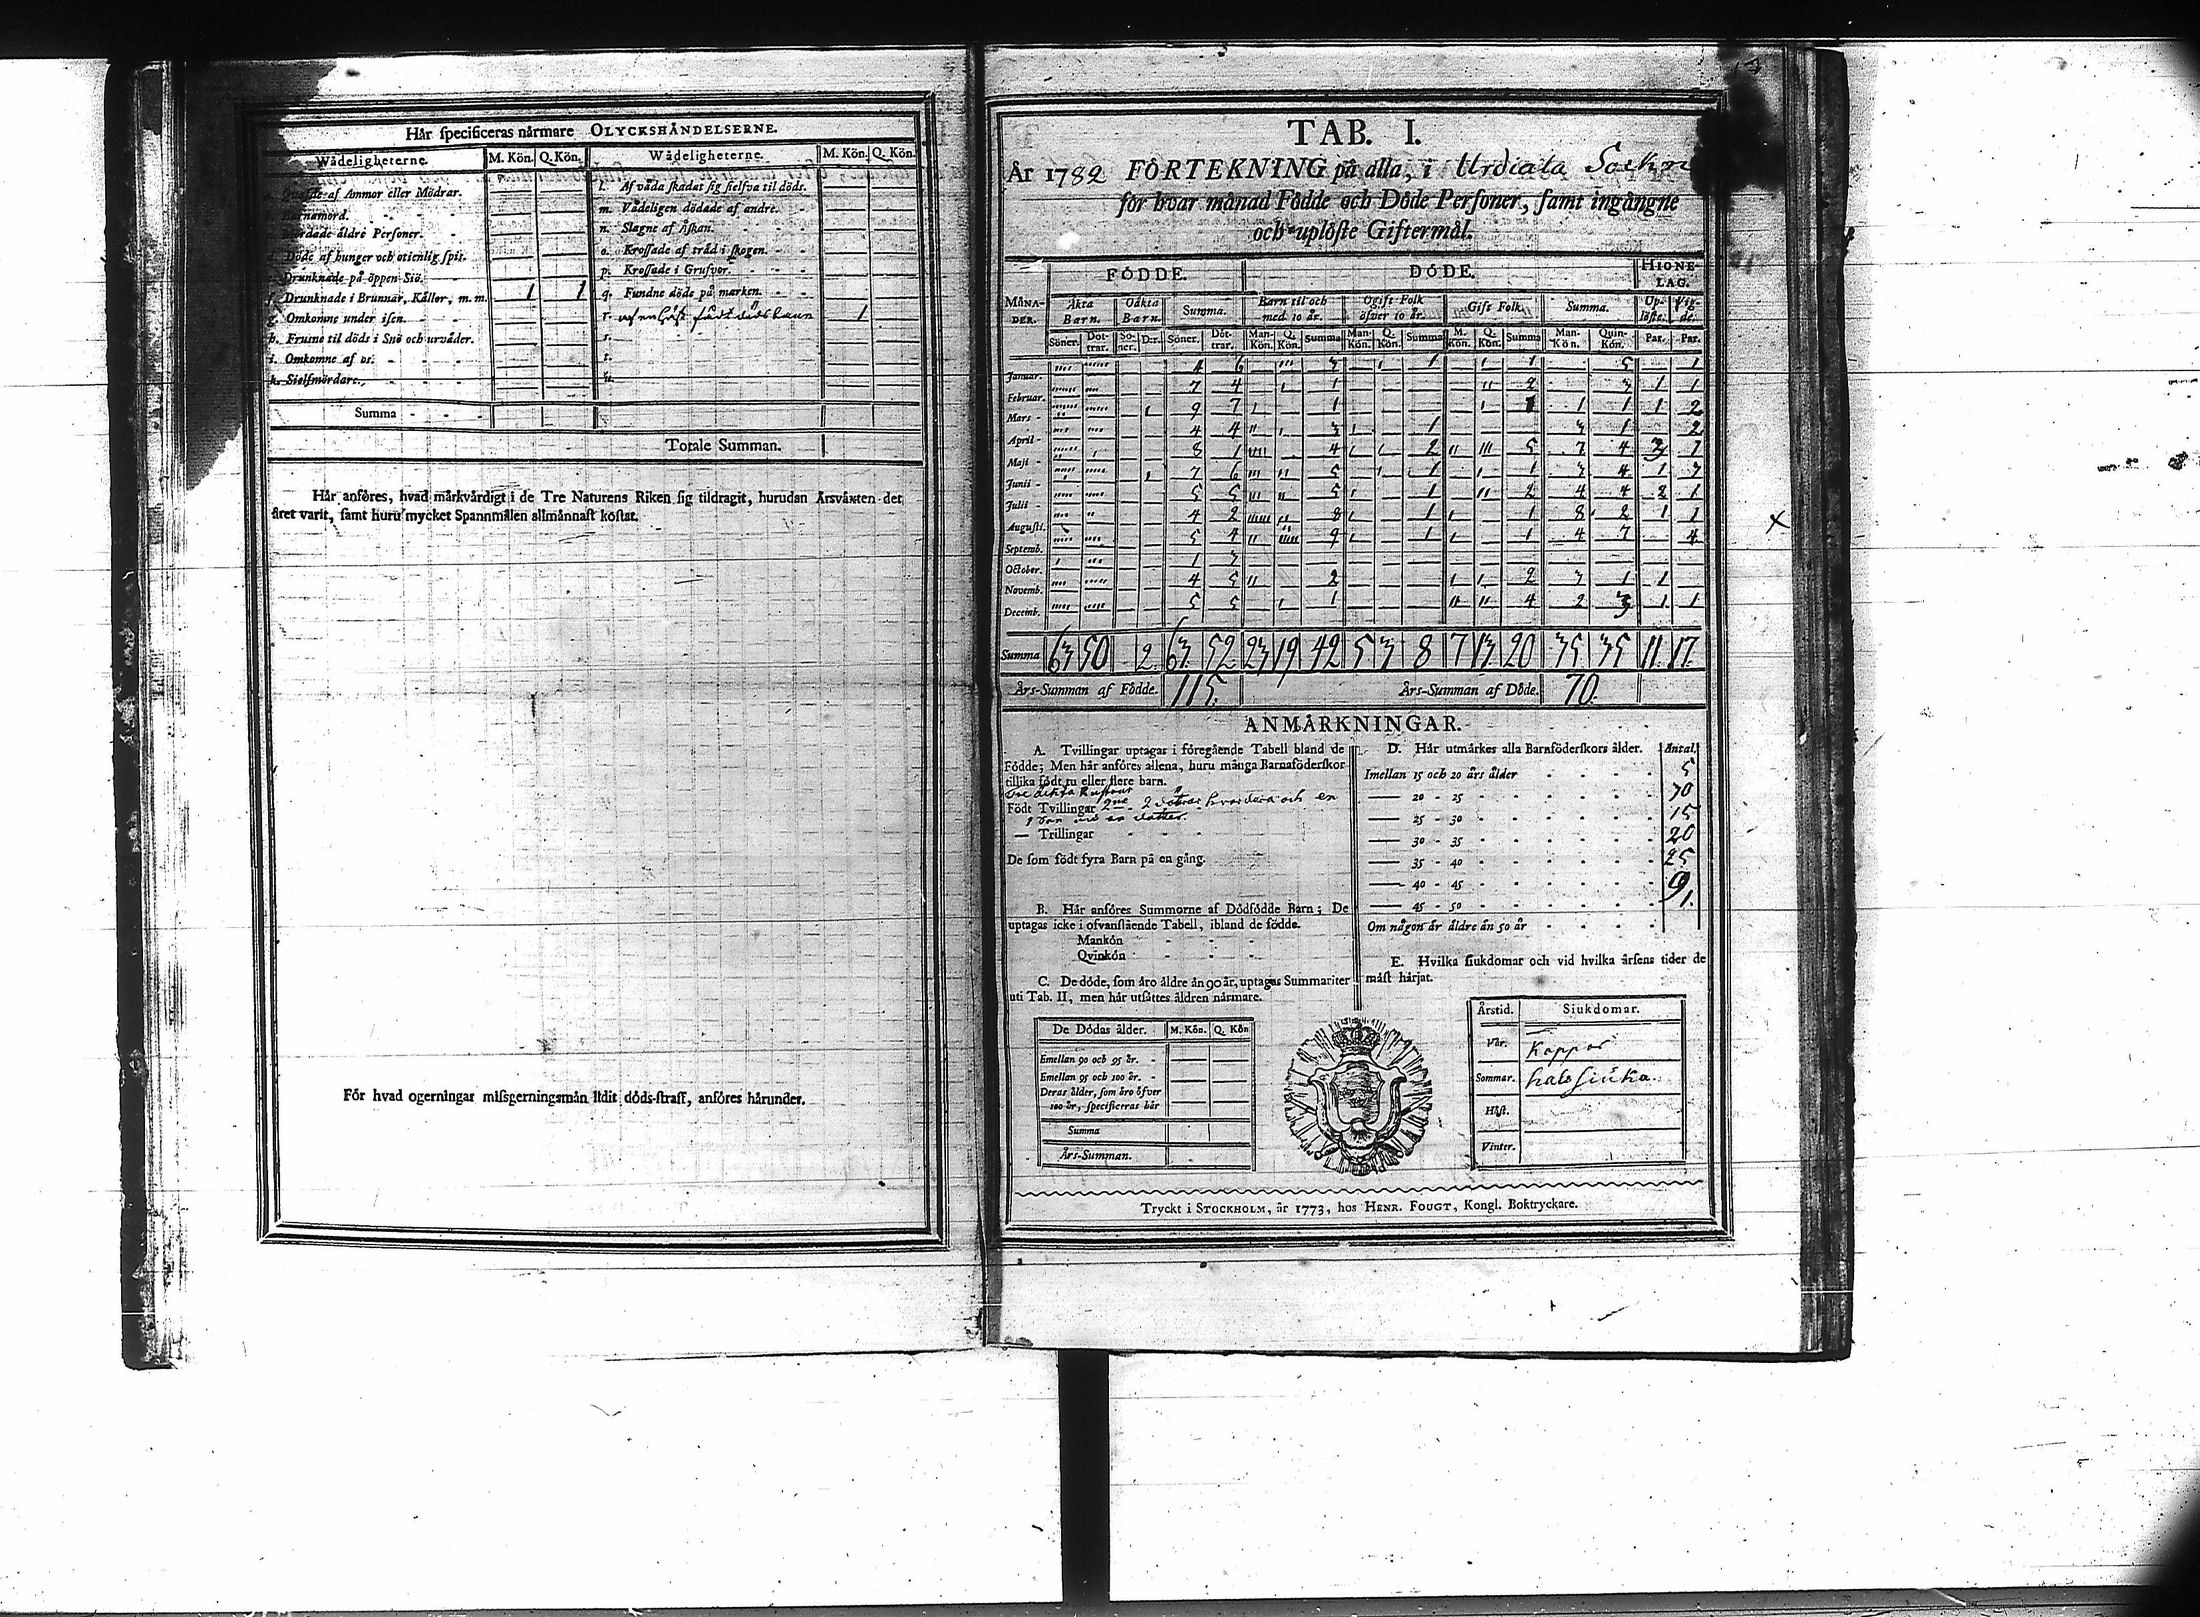 Hår specificeras nårmare OLYCKSHÅNDELSERNE.
Wådeligheterne. M. Kön. Q. Kön. Wådeligheterne. M. Kön. Q. Kön.
af Ammor eller Mödrar. l. Af våda skadat sig sielfva til döds.
m. Vådeligen dödade af andre.
åldre Personer. n. Slagne af Åskan.
d. Döde af hunger och otienlig spis. o. Krossade af tråd i skogen.
Drunknade på öppen Siö. p. Krossade i Grufvor.
f. Drunknade i Brunnar, Kållor, m. m. 1 1 q. Fundne döde på marken.
g. Omkomne under isen. r. 1
h. Frusne til döds i Snö och urvåder. s.
i. Omkomne af os. t.
k. Sielfmördare. u.
Summa
Totale Summan.
Hår anföres, hvad mårkvårdigt i de Tre Naturens Riken sig tildragit, hurudan Årsvåxten det
året varit, samt huru mycket Spannmålen allmånnast kostat.
För hvad ogerningar missgerningsmån lidit döds-straff, anföres hårunder.
TAB. I.
År 1782 FÖRTEKNING på alla, i Urdiala Sockn
för hvar månad Födde och Döde Personer, samt ingångne
och uplöste Giftermål.
FÖDDE. DÖDE. HIONE-LAG.
MÅNA-DER. Åkta Barn. Oåkta Barn. Summa. Barn til och med 10 år. Ogift Folk öfver 10 år. Gift Folk. Summa. Up-löste. Vig-de.
Söner. Dot-trar. So-ner. D:r. Söner. Döt-trar. Man-Kön. Q. Kön. Summa Man-Kön. Q. Kön. Summa M. Kön. Q. Kön. Summa Man-Kön. Quin-Kön. Par. Par.
Januar. 4 6 3 1 1 5 1
Februar. 7 4 1 2 3 1 1
Mars 9 7 1 1 1 1 1 2
April 4 4 3 1 3 1 2
Maji 8 1 4 2 5 7 4 3 1
Junii 7 6 5 1 1 3 4 1 3
Julii 5 5 5 1 2 4 4 2 1
Augusti. 4 2 8 1 1 8 2 1 1
Septemb. 5 4 9 1 1 4 7 4
October. 1 3
Novemb. 4 5 2 2 3 1 1
Decemb. 5 5 1 4 2 3 1 1
Summa 63 50 2 63 52 23 19 42 5 3 8 7 13 20 35 35 11 17
Års-Summan af Födde. 115. Års-Summan af Döde. 70.
ANMÅRKNINGAR.
A. Tvillingar uptagas i föregående Tabell bland de
Födde; Men hår anföres allena, huru många Barnaföderskor
tillika födt tu eller flere barn.
Födt Tvillingar 2 döttrar hvardera och en
— Trillingar
De som födt fyra Barn på en gång.
B. Hår anföres Summorne af Dödfödde Barn; De
uptagas icke i ofvanstående Tabell, ibland de födde.
Mankön
Qvinkön
C. De döde, som åro åldre ån 90 år, uptagas Summariter
uti Tab. II, men hår utsåttes åldren nårmare.
De Dödas ålder. M. Kön. Q. Kön
Emellan 90 och 95 år.
Emellan 95 och 100 år.
Deras ålder, som åro öfver
100 år, specificeras hår
Summa
Års-Summan.
D. Hår utmårkes alla Barnföderskors ålder. Antal.
Imellan 15 och 20 års ålder 5
— 20 - 25 30
— 25 - 30 15
— 30 - 35 20
— 35 - 40 25
— 40 - 45 9
— 45 - 50 1.
Om någon år åldre ån 50 år
E. Hvilka siukdomar och vid hvilka årsens tider de
måst hårjat.
Årstid. Siukdomar.
Vår. Koppor
Sommar. halssiuka.
Höst.
Vinter.
Tryckt i STOCKHOLM, år 1773, hos HENR. FOUGT, Kongl. Boktryckare.